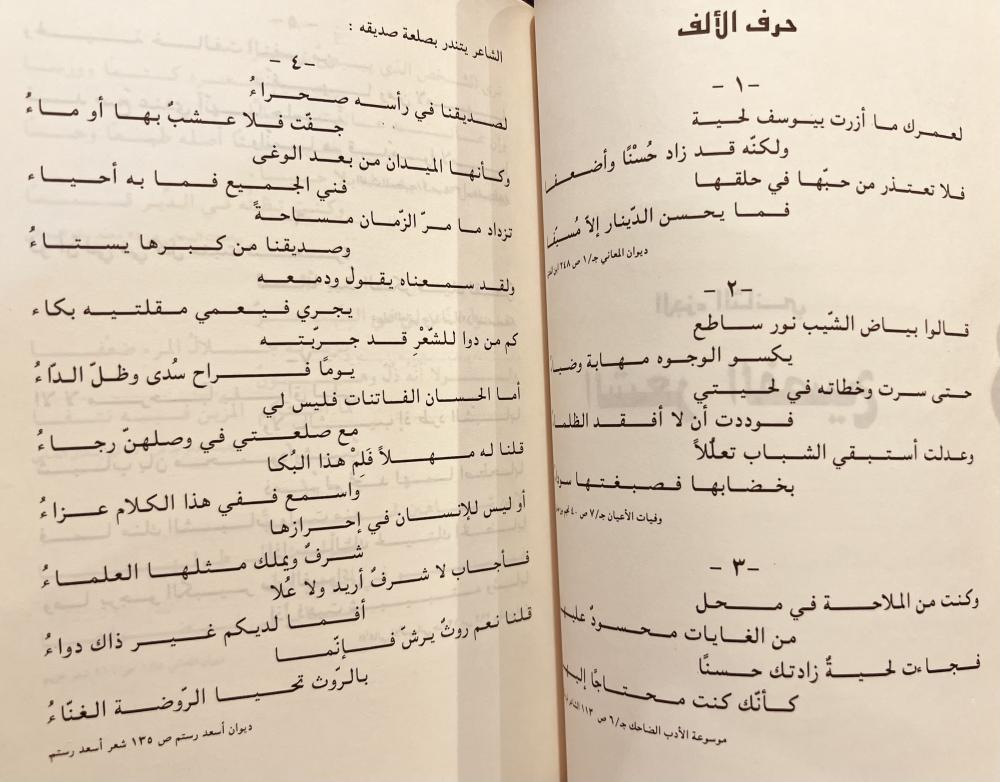 حرف الألف
-١-
لعمرك ما أزرت بيوسف لحية
ولكنّه قد زاد حُسْنًا وأضعفـ
فلا تعتذر من حبّها في حلقها
فما يحسن الدّينار إلاّ مُسيّفـ
ديوان المعاني جـ/١ ص ٢٤٨
-٢-
قالوا بياض الشّيب نور ساطع
يكسو الوجوه مهابة وضيـا
حتى سرت وخطاته في لحيتي
فوددت أن لا أفقد الظلمـا
وعدلت أستبقي الشباب تعلّلاً
بخضابها فصبغتها سودا
وفيات الأعيان جـ/٧ ص ٤٠
-٣-
وكنت من الملاحة في محل
من الغايات محسودٌ عليـ
فجاءت لحيةٌ زادتك حسنًا
كأنّك كنت محتاجًا إليـ
موسوعة الأدب الضاحك جـ/٦ ص ١١٣
الشاعر يتندر بصلعة صديقه :
-٤-
لصديقنا في رأسه صحراءُ
جفّت فلا عشبٌ بها أو ماءُ
وكأنها الميدان من بعد الوغى
فني الجميع فما به أحياء
تزداد ما مرّ الزّمان مساحةً
وصديقنا من كبرها يستاءُ
ولقد سمعناه يقول ودمعه
يجري فيعمي مقلتيه بكاء
كم من دوا للشّعْرِ قد جربّته
يومًا فراح سُدى وظلّ الدّاءُ
أما الحسان الفاتنات فليس لي
مع صلعتي في وصلهنّ رجاءُ
قلنا له مهلاً فَلِمْ هذا البُكا
واسمع ففي هذا الكلام عزاءُ
أو ليس للإنسان في إحرازها
شرفٌ ويملك مثلها العلماءُ
فأجاب لا شرفٌ أريد ولا عُلا
أفما لديكم غير ذاك دواءُ
قلنا نعم روثٌ يرشّ فإنّما
بالرّوث تحيا الرّوضة الغنّاءُ
ديوان أسعد رستم ص ١٣٥ شعر أسعد رستم